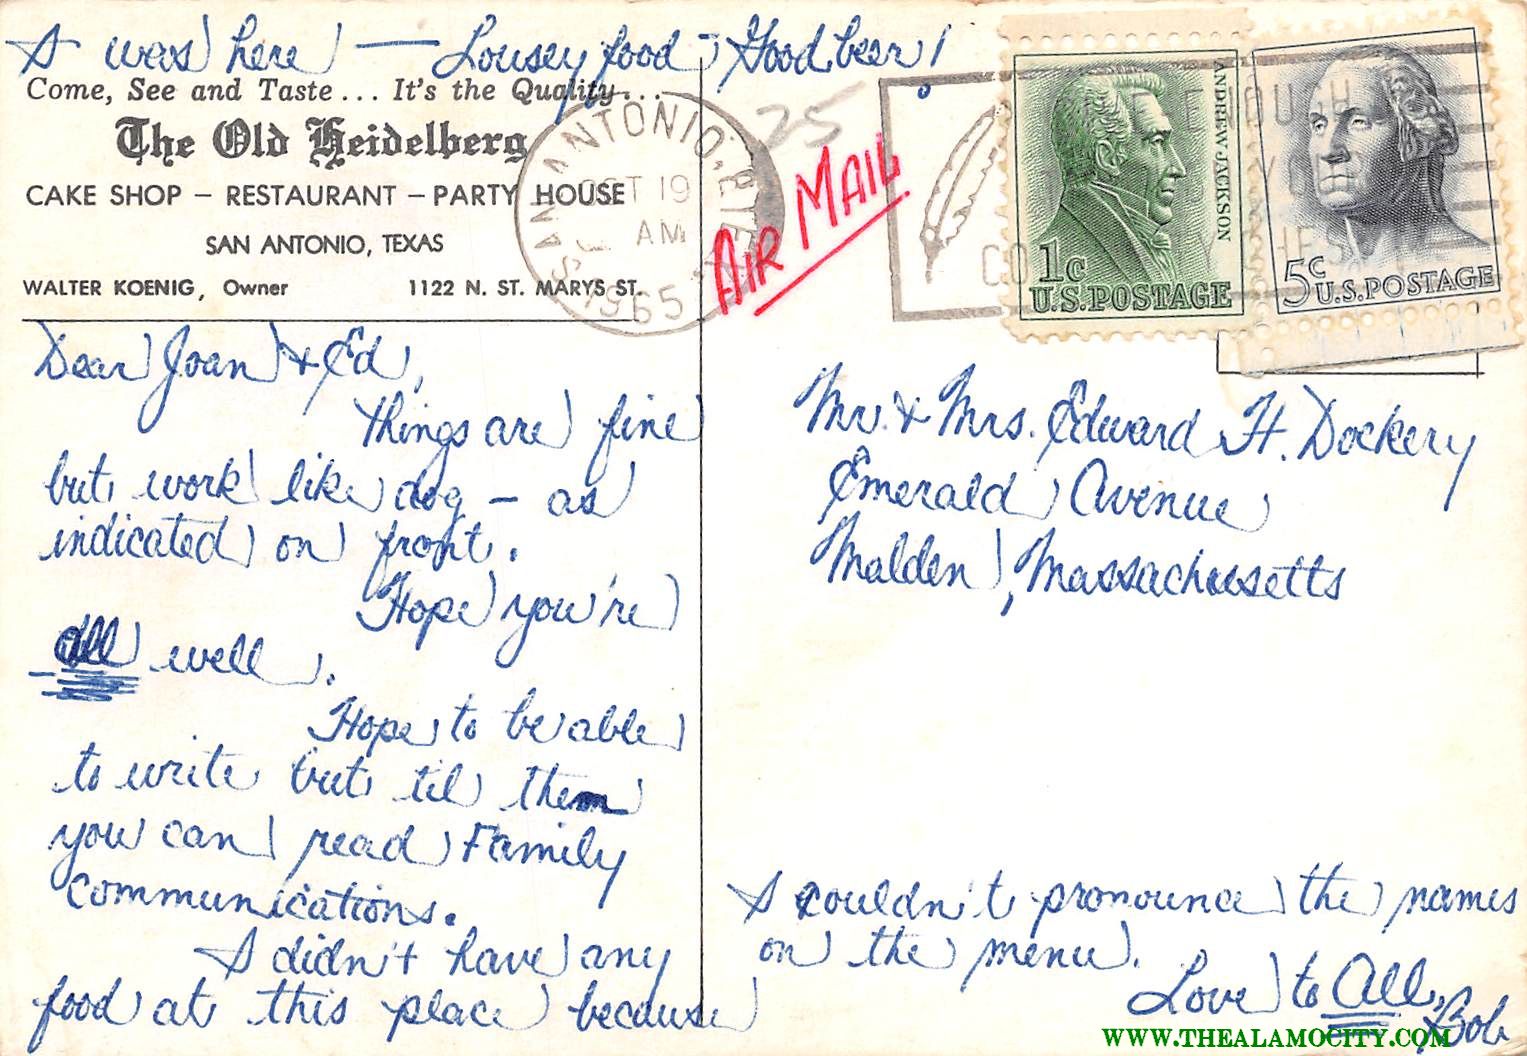 I was here — Lousey food - Good beer!
Come, See and Taste ... It's the Quality...
The Old Heidelberg
CAKE SHOP – RESTAURANT – PARTY HOUSE
SAN ANTONIO, TEXAS
WALTER KOENIG, Owner 1122 N. ST. MARYS ST.
SAN ANTONIO,
OCT 19
AM
1965
25
AIR MAIL
ANDREW JACKSON
1c
U.S. POSTAGE
5c
U.S. POSTAGE
Dear Joan & Ed,
Things are fine
but work like dog – as
indicated on front.
Hope you're
all well.
Hope to be able
to write but til them
you can read Family
Communications.
I didn't have any
food at this place because
I couldn't pronounce the names
on the menu.
Love to All,
Bob
Mr. & Mrs. Edward H. Dockery
Emerald Avenue
Malden, Massachusetts
WWW.THEALAMOCITY.COM